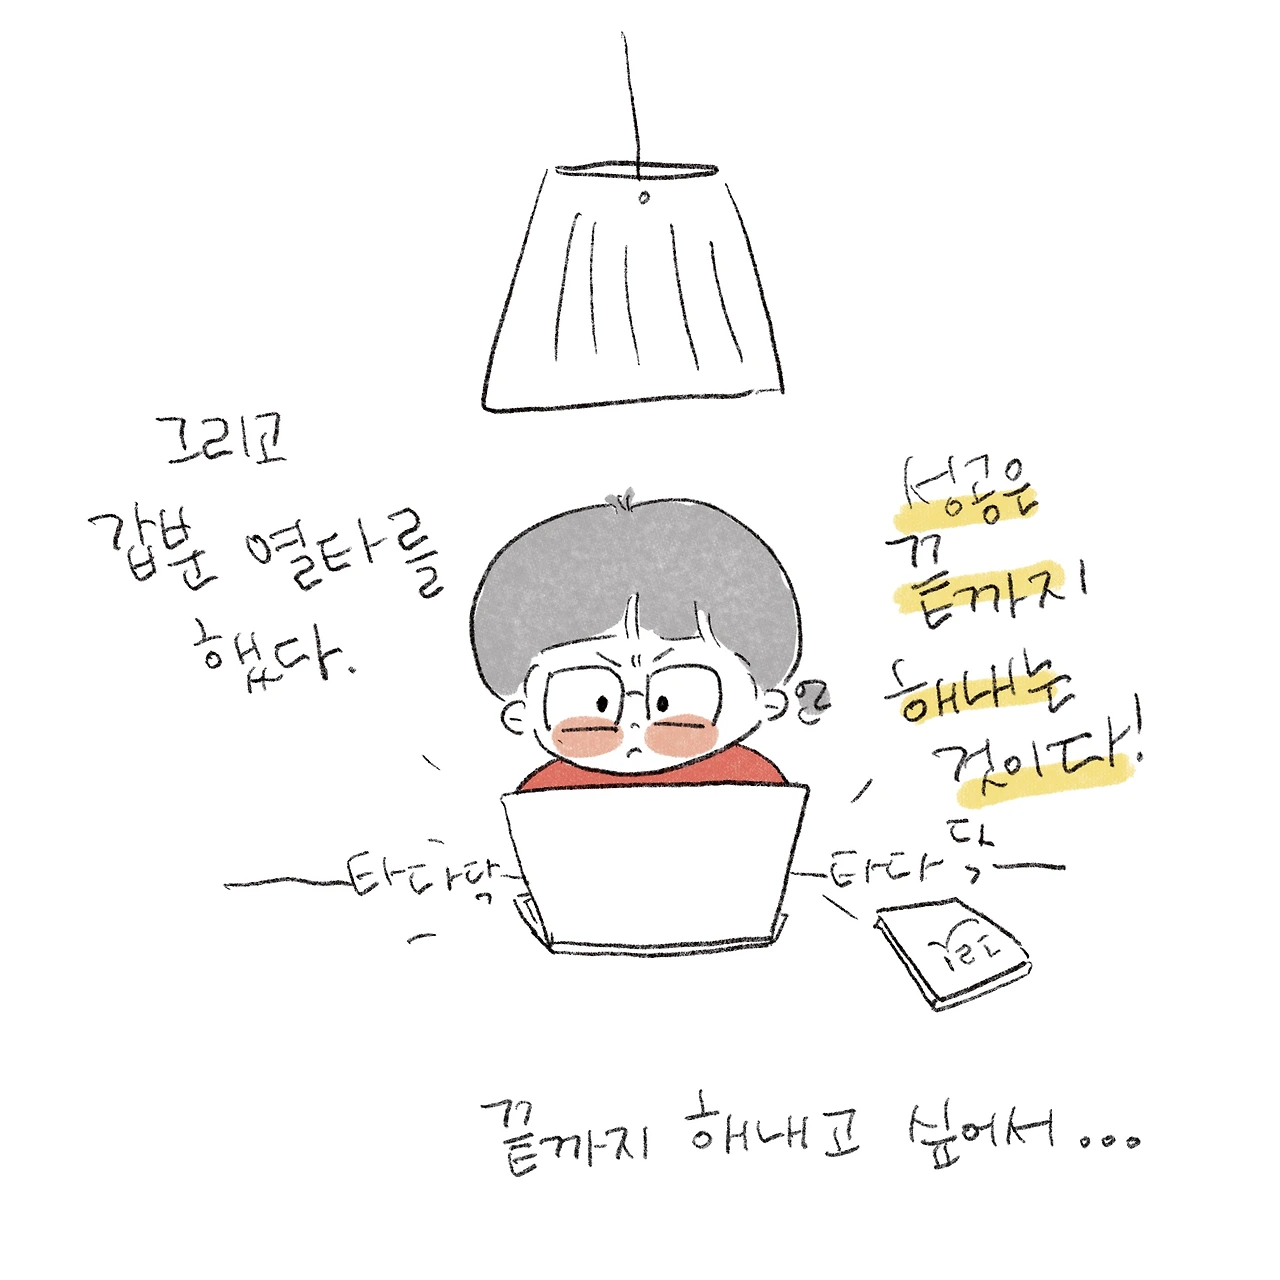 그리고
갑분 열타를
했다.
성공은
끝까지
해내는
것이다!
타다닥
타다닥
끝까지 해내고 싶어서...